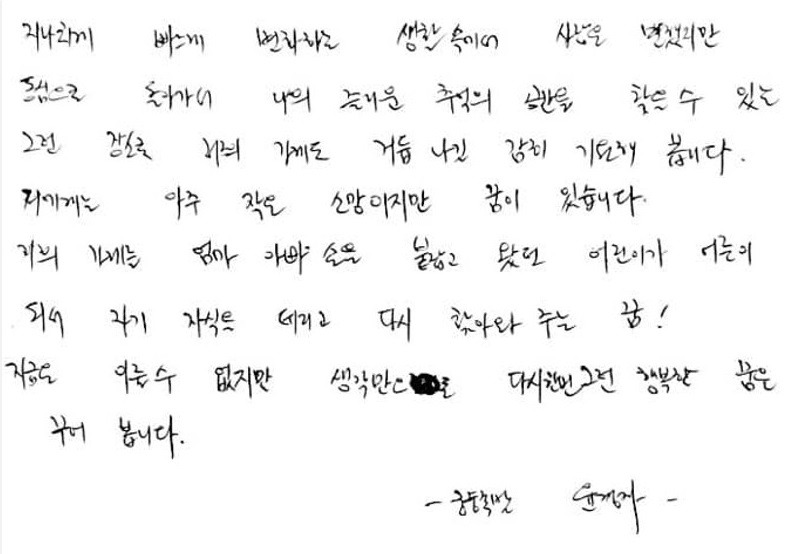 지나치게 빠르게 변화하는 생활 속에서 사람은 변했지만
동심으로 돌아가서 나의 즐거운 추억의 공간을 찾을 수 있는
그런 장소로 저희 가게도 거듭 나길 감히 기도해 봅니다.
저에게는 아주 작은 소망이지만 꿈이 있습니다.
저희 가게는 엄마 아빠 손을 붙잡고 왔던 어린이가 어른이
되어 자기 자식을 데리고 다시 찾아와 주는 꿈!
지금은 이룰수 없지만 생각만으로 다시한번 그런 행복한 꿈은
꾸어 봅니다.
- 궁중족발 윤경자 -